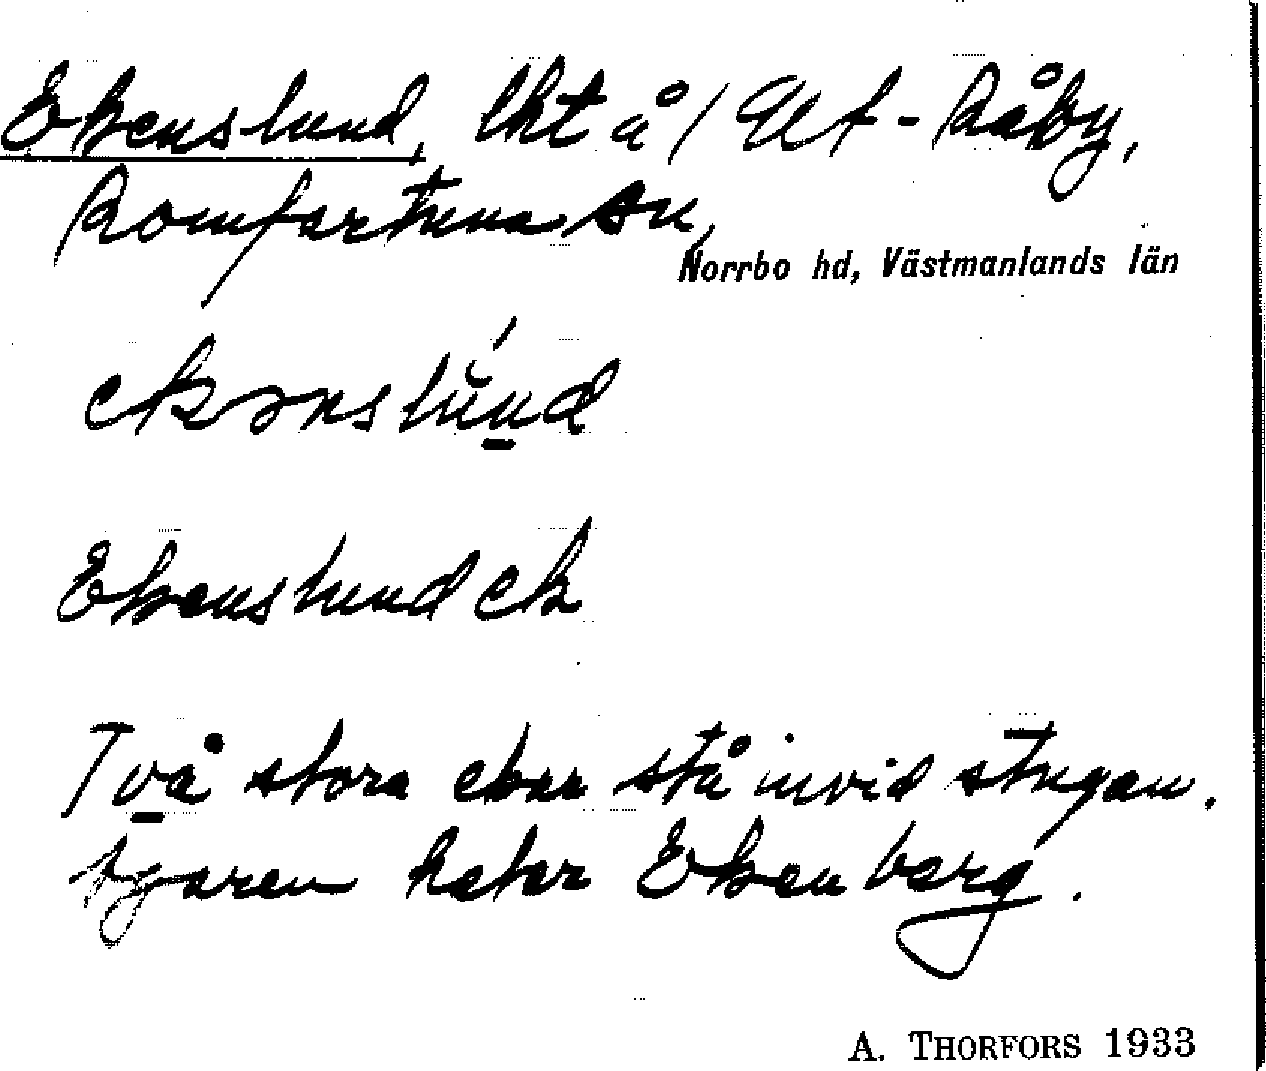 Ekenslund, lht å / Ut-Råby,
Romfartuna sn,
Norrbo hd, Västmanlands län
ekənslúnd
Ekenslund ek
Två stora ekar stå invid stugan.
Ägaren heter Ekenberg.
A. THORFORS 1933